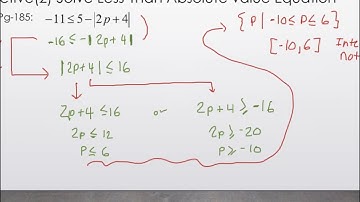 ctive(2) Solve Less Than Absolute Value Equation
Pg-185: -11 ≤ 5 - |2p + 4|
-16 ≤ -|2p+4|
|2p+4| ≤ 16
2p+4 ≤ 16 or 2p+4 ≥ -16
2p ≤ 12 2p ≥ -20
p ≤ 6 p ≥ -10
{ p | -10 ≤ p ≤ 6 }
[-10, 6] Inte
not